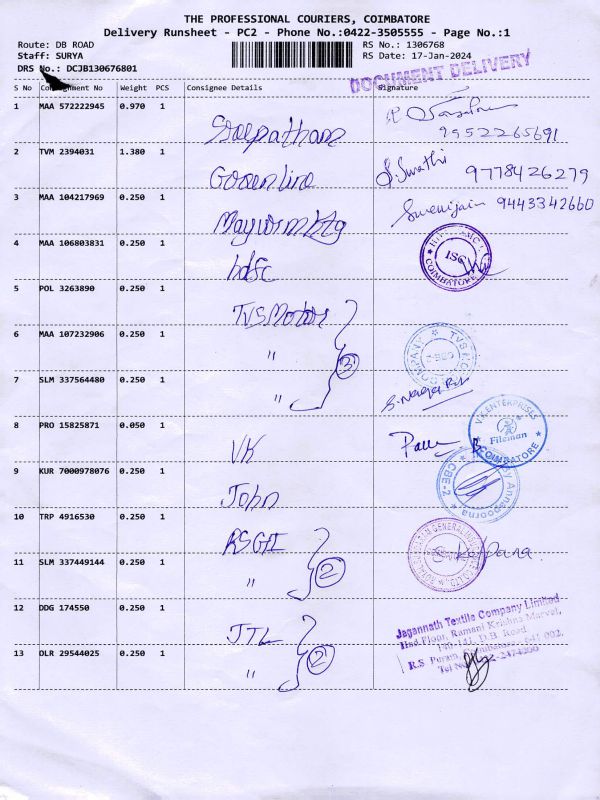 THE PROFESSIONAL COURIERS, COIMBATORE
Delivery Runsheet - PC2 - Phone No.:0422-3505555 - Page No.:1
Route: DB ROAD
Staff: SURYA
DRS No.: DCJB130676801
RS No.: 1306768
RS Date: 17-Jan-2024
DOCUMENT DELIVERY
S No Consignment No Weight PCS Consignee Details Signature
1 MAA 572222945 0.970 1
9952265691
2 TVM 2394031 1.380 1 Greenline S. Swathi 9778426279
3 MAA 104217969 0.250 1 9443342660
4 MAA 106803831 0.250 1 hdfc
ISC
COIMBATORE
5 POL 3263890 0.250 1 TVS Motor
6 MAA 107232906 0.250 1 "
3
TVS
COMPANY
7 SLM 337564480 0.250 1 "
8 PRO 15825871 0.050 1 VK
V.K. ENTERPRISES
Fileman
COIMBATORE
9 KUR 7000978076 0.250 1 John
Annapoorna
CBE-2
10 TRP 4916530 0.250 1 RSGI
11 SLM 337449144 0.250 1 "
2
Kalpana
12 DDG 174550 0.250 1 JTL
13 DLR 29544025 0.250 1 "
2
Jagannath Textile Company Limited
IInd Floor, Ramani Krishna Marvel,
D.B. Road
R.S Puram, Coimbatore 641 002.